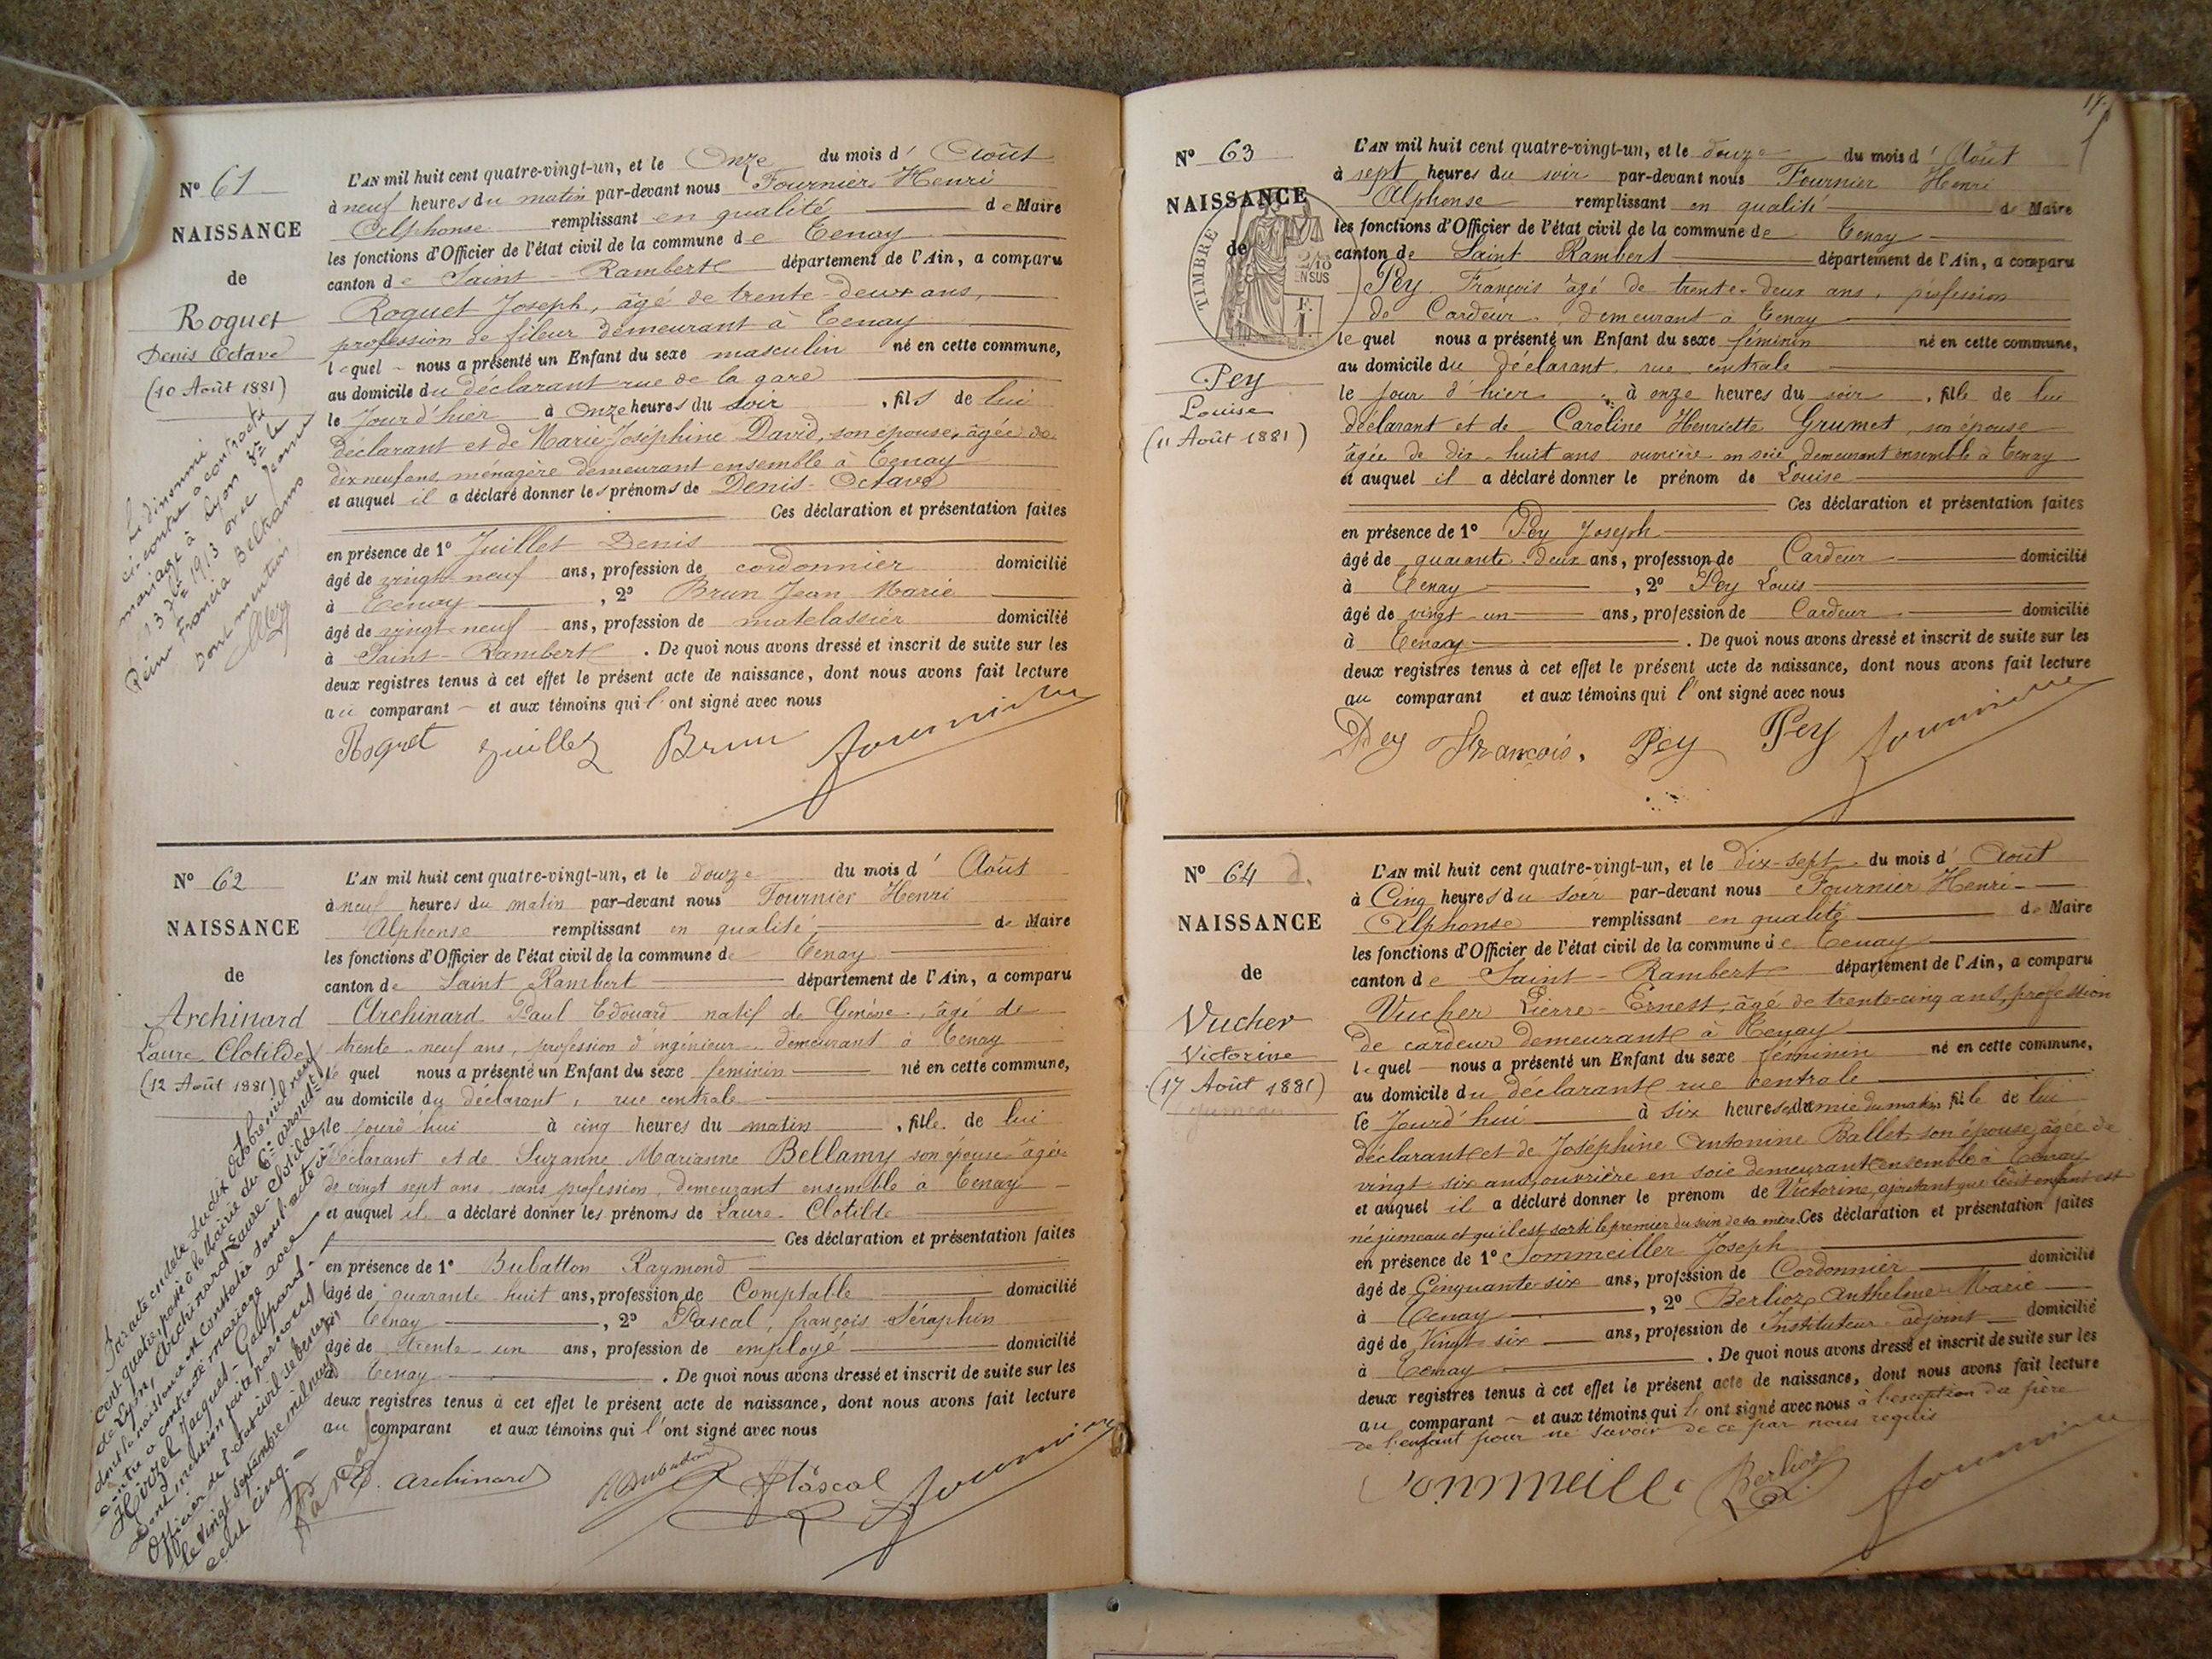 N° 61
NAISSANCE
de
Roquet
Denis Octave
(10 Août 1881)
Le dénommé
ci-contre a contracté
mariage à Lyon 8e le
13 1913 avec Jeanne
Francia Beltramo
Dont mention
L'AN mil huit cent quatre-vingt-un, et le Onze du mois d' Août
à neuf heures du matin par-devant nous Fournier Henri
Alphonse remplissant en qualité de Maire
les fonctions d'Officier de l'état civil de la commune de Tenay
canton de Saint-Rambert département de l'Ain, a comparu
Roquet Joseph, âgé de trente-deux ans,
profession de fileur demeurant à Tenay
lequel nous a présenté un Enfant du sexe masculin né en cette commune,
au domicile du déclarant rue de la gare
le Jour d'hier à Onze heures du soir, fils de lui
déclarant et de Marie Joséphine David, son épouse, âgée de
dix neuf ans, ménagère demeurant ensemble à Tenay
et auquel il a déclaré donner les prénoms de Denis-Octave
Ces déclaration et présentation faites
en présence de 1° Juillet Denis
âgé de vingt neuf ans, profession de cordonnier domicilié
à Tenay, 2° Brun Jean Marie
âgé de vingt-neuf ans, profession de matelassier domicilié
à Saint-Rambert. De quoi nous avons dressé et inscrit de suite sur les
deux registres tenus à cet effet le présent acte de naissance, dont nous avons fait lecture
au comparant et aux témoins qui l'ont signé avec nous
Roquet Juillet Brun Fournier
N° 62
NAISSANCE
de
Archinard
Laure Clotilde
(12 Août 1881)
Par acte en date du dix Octobre mil neuf
cent quatre, passé à la Mairie du 6e arrondt
de Lyon, Archinard Laure Clotilde,
dont la naissance est constatée dans l'acte ci-
contre a contracté mariage avec
Hirzel Jacques-Gaspard-
Dont mention faite par nous
Officier de l'état civil de Tenay
le vingt septembre mil neuf
cent cinq.-
L'AN mil huit cent quatre-vingt-un, et le douze du mois d' Août
à neuf heures du matin par-devant nous Fournier Henri
Alphonse remplissant en qualité de Maire
les fonctions d'Officier de l'état civil de la commune de Tenay
canton de Saint Rambert département de l'Ain, a comparu
Archinard Paul Edouard natif de Genève, âgé de
trente-neuf ans, profession d'ingénieur demeurant à Tenay
lequel nous a présenté un Enfant du sexe féminin né en cette commune,
au domicile du déclarant, rue centrale
le jourd'hui à cinq heures du matin, fille de lui
déclarant et de Suzanne Marianne Bellamy son épouse âgée
de vingt sept ans sans profession, demeurant ensemble à Tenay
et auquel il a déclaré donner les prénoms de Laure-Clotilde
Ces déclaration et présentation faites
en présence de 1° Bubatton Raymond
âgé de quarante huit ans, profession de Comptable domicilié
Tenay, 2° Pascal, françois Séraphin
âgé de trente-un ans, profession de employé domicilié
Tenay. De quoi nous avons dressé et inscrit de suite sur les
deux registres tenus à cet effet le présent acte de naissance, dont nous avons fait lecture
au comparant et aux témoins qui l'ont signé avec nous
E. Archinard Pascal Fournier
17.
N° 63
NAISSANCE
de
TIMBRE
2/10
EN SUS
F.
1.
Pey
Louise
(11 Août 1881)
L'AN mil huit cent quatre-vingt-un, et le douze du mois d' Août
à sept heures du soir par-devant nous Fournier Henri
Alphonse remplissant en qualité de Maire
les fonctions d'Officier de l'état civil de la commune de Tenay
canton de Saint Rambert département de l'Ain, a comparu
Pey François âgé de trente-deux ans, profession
de Cardeur, demeurant à Tenay
lequel nous a présenté un Enfant du sexe féminin né en cette commune,
au domicile du déclarant, rue centrale
le jour d'hier à onze heures du soir, fille de lui
déclarant et de Caroline Henriette Grumet, son épouse
âgée de dix-huit ans ouvrière en soie demeurant ensemble à Tenay
et auquel il a déclaré donner le prénom de Louise
Ces déclaration et présentation faites
en présence de 1° Pey Joseph
âgé de quarante-deux ans, profession de Cardeur domicilié
à Tenay, 2° Pey Louis
âgé de vingt-un ans, profession de Cardeur domicilié
à Tenay. De quoi nous avons dressé et inscrit de suite sur les
deux registres tenus à cet effet le présent acte de naissance, dont nous avons fait lecture
au comparant et aux témoins qui l'ont signé avec nous
Pey François. Pey Pey Fournier
N° 64
NAISSANCE
de
Vucher
Victorine
(17 Août 1881)
jumeau
L'AN mil huit cent quatre-vingt-un, et le dix-sept du mois d' Août
à Cinq heures du soir par-devant nous Fournier Henri-
Alphonse remplissant en qualité de Maire
les fonctions d'Officier de l'état civil de la commune de Tenay
canton de Saint-Rambert département de l'Ain, a comparu
Vucher Pierre-Ernest, âgé de trente-cinq ans, profession
de cardeur demeurant à Tenay
lequel nous a présenté un Enfant du sexe féminin né en cette commune,
au domicile du déclarant rue centrale
le Jourd'hui à six heures et demie du matin, fille de lui
déclarant et de Joséphine Antonine Ballet, son épouse, âgée de
vingt six ans, ouvrière en soie demeurant ensemble à Tenay
et auquel il a déclaré donner le prénom de Victorine, ajoutant que ledit enfant est
né jumeau et qu'il est sorti le premier du sein de sa mère. Ces déclaration et présentation faites
en présence de 1° Sommeiller Joseph
âgé de Cinquante-six ans, profession de Cordonnier domicilié
à Tenay, 2° Berlioz Anthelme-Marie
âgé de Vingt six ans, profession de Instituteur-adjoint domicilié
à Tenay. De quoi nous avons dressé et inscrit de suite sur les
deux registres tenus à cet effet le présent acte de naissance, dont nous avons fait lecture
au comparant et aux témoins qui l'ont signé avec nous à l'exception du père
de l'enfant pour ne savoir de ce par nous requis
Sommeille Berlioz Fournier